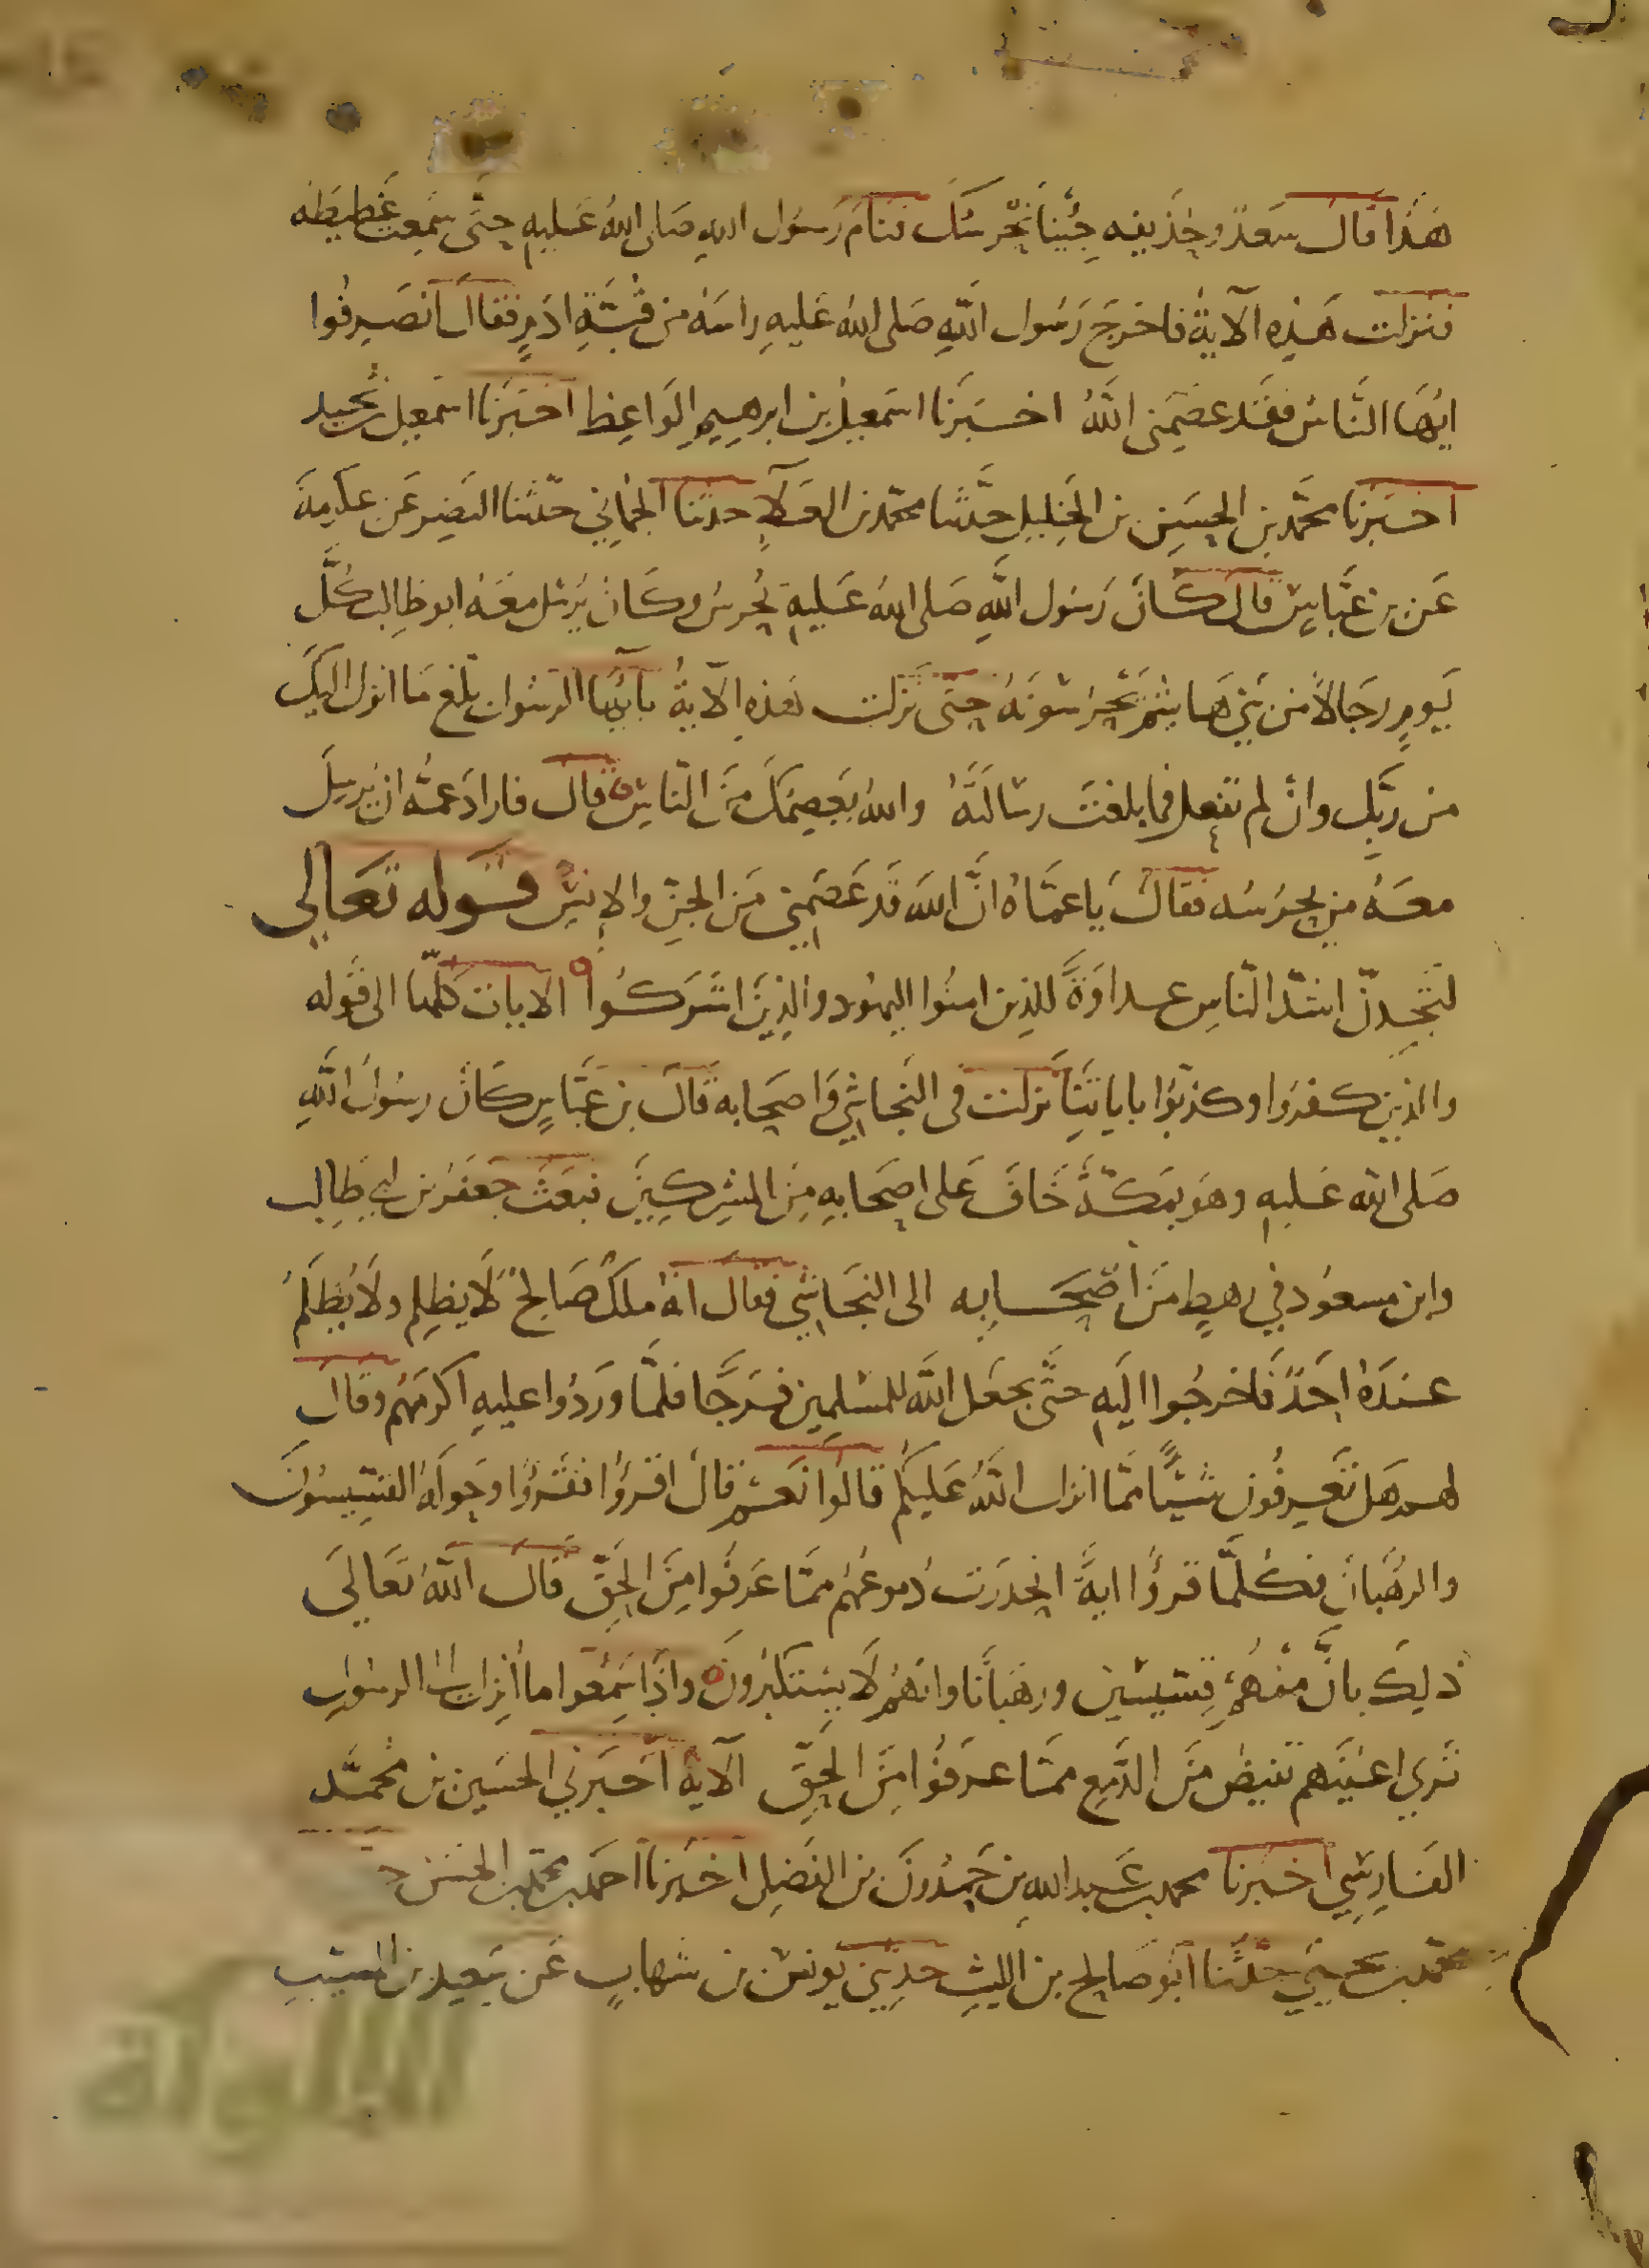 هَذا قال سَعدٌ وحُذيفه جِئنا نَحْرسك فنام رَسُول الله صَلى اللهُ عَليهِ حتَّى سَمِعت غطيطه
فنزلت هَذِه الآية فاخرجَ رَسُول اللهِ صَلى اللهُ عَليهِ راسَه من قُبَّةِ ادَمٍ فقال انصَرِفُوا
ايُّها النَّاسُ فقَد عصَمَني اللَّهُ اخبَرَنا اسمَعيل بن ابرهيم الوَاعِظ اخبَرَنا اسمعيل بن نجيد
اخبَرنا محمَّد بن الحسَين بن الخليلِ حدَّثنا محمد بن العَلآءِ حدثنا الحِمَّاني حدّثنا النَضر عَن عكرمةَ
عَن بن عَبَّاسٍ قال كَانَ رَسُول اللهِ صَلى اللهُ عَليهِ يُحرسُ وكَانَ يُرسل معَهُ ابو طالب كُلَّ
يَومٍ رجَالاً من بَني هَاشِم يَحْرسُونَهُ حتى نَزلت هَذِهِ الآيةُ يا أَيُّها الرسُول بَلّغ مَا انزل اليكَ
من رَبِّك وانْ لم تفعل فما بلغتَ رسَالتَهُ واللهُ يَعصِمُكَ منَ النّاس قال فارادَ عَمُّه ان يُرسِلَ
معَهُ من يحرُسُه فقالَ يَا عمَّاهُ انَّ اللهَ قَد عَصَمَني مَن الجنِّ والإنسِ قوله تعَالى
لتَجِدنَّ اشدّ النّاسِ عداوَةً للذين امنُوا اليهُود والذِينَ اشرَكُوا الايات كلّها الى قوله
والذين كفرُوا وكذبُوا باياتنَا نزلت فى النَجاشي وَاصحَابه قالَ بن عَبَّاسٍ كَانَ رسُولُ اللَّهِ
صَلى الله عَليهِ وهوَ بمكةَ خَافَ عَلى اصحَابِهِ مِنَ المشركِينَ فبعَثَ جعفَر بن ابي طالب
وابن مسعُود في رهطٍ مَن أصْحَابِه الى النجَاشي فقال انَّهُ مَلكٌ صَالحٌ لَا يظلِم ولَا يُظلَمُ
عندَهُ احَدٌ فَاخرجُوا اليَهِ حتَّى يجعَل اللَّه للمسْلِمين فَرَجَا فلمَّا ورَدُوا عليهِ اكرمَهُم وقالَ
لهم هَل تَعرفُون شَيئًا ممّا انزل اللَّهُ عَليكم قالوُا نعَم قالَ اقرؤُا فقَرؤُا وحَولَهُ القِسّيسُونَ
والرهُبَان فكُلَّما قرؤُا ايةً انحدَرت دُموعُهُم ممَّا عَرفُوا مِنَ الحقّ قَالَ اللَّهُ تعَالىَ
ذلِكَ بانَّ منْهُمْ قسّيسين ورهْبَانًا وانهُم لَا يَستكبرُونَ وَاذَا سَمعُوا ما أُنزِل الى الرسُولِ
تَرى اعيُنَهم تفيضُ منَ الدَّمعِ ممَّا عرَفُوا مِنَ الحقّ الآيةُ اخبَرني الحسَين بن محمَّد
الفَارِسِي اخبَرنا محمد بن عَبد الله بن حَمدُونَ بن الفضِل اخبَرنا احمَد بن محمّد بن الحسَن
محمَّد بن يحيَي حدَّثنا ابُو صَالح بن الليثِ حدثني يونس بن شهابٍ عَن سَعِيد بن المسَيبِ